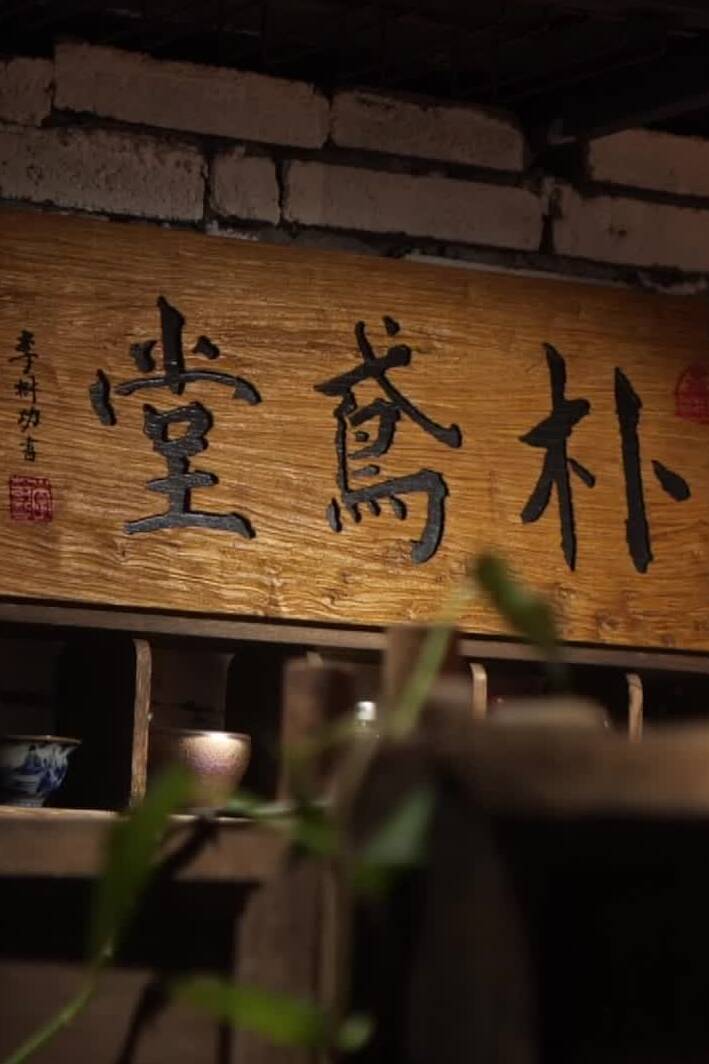 朴鸢堂
李树功书